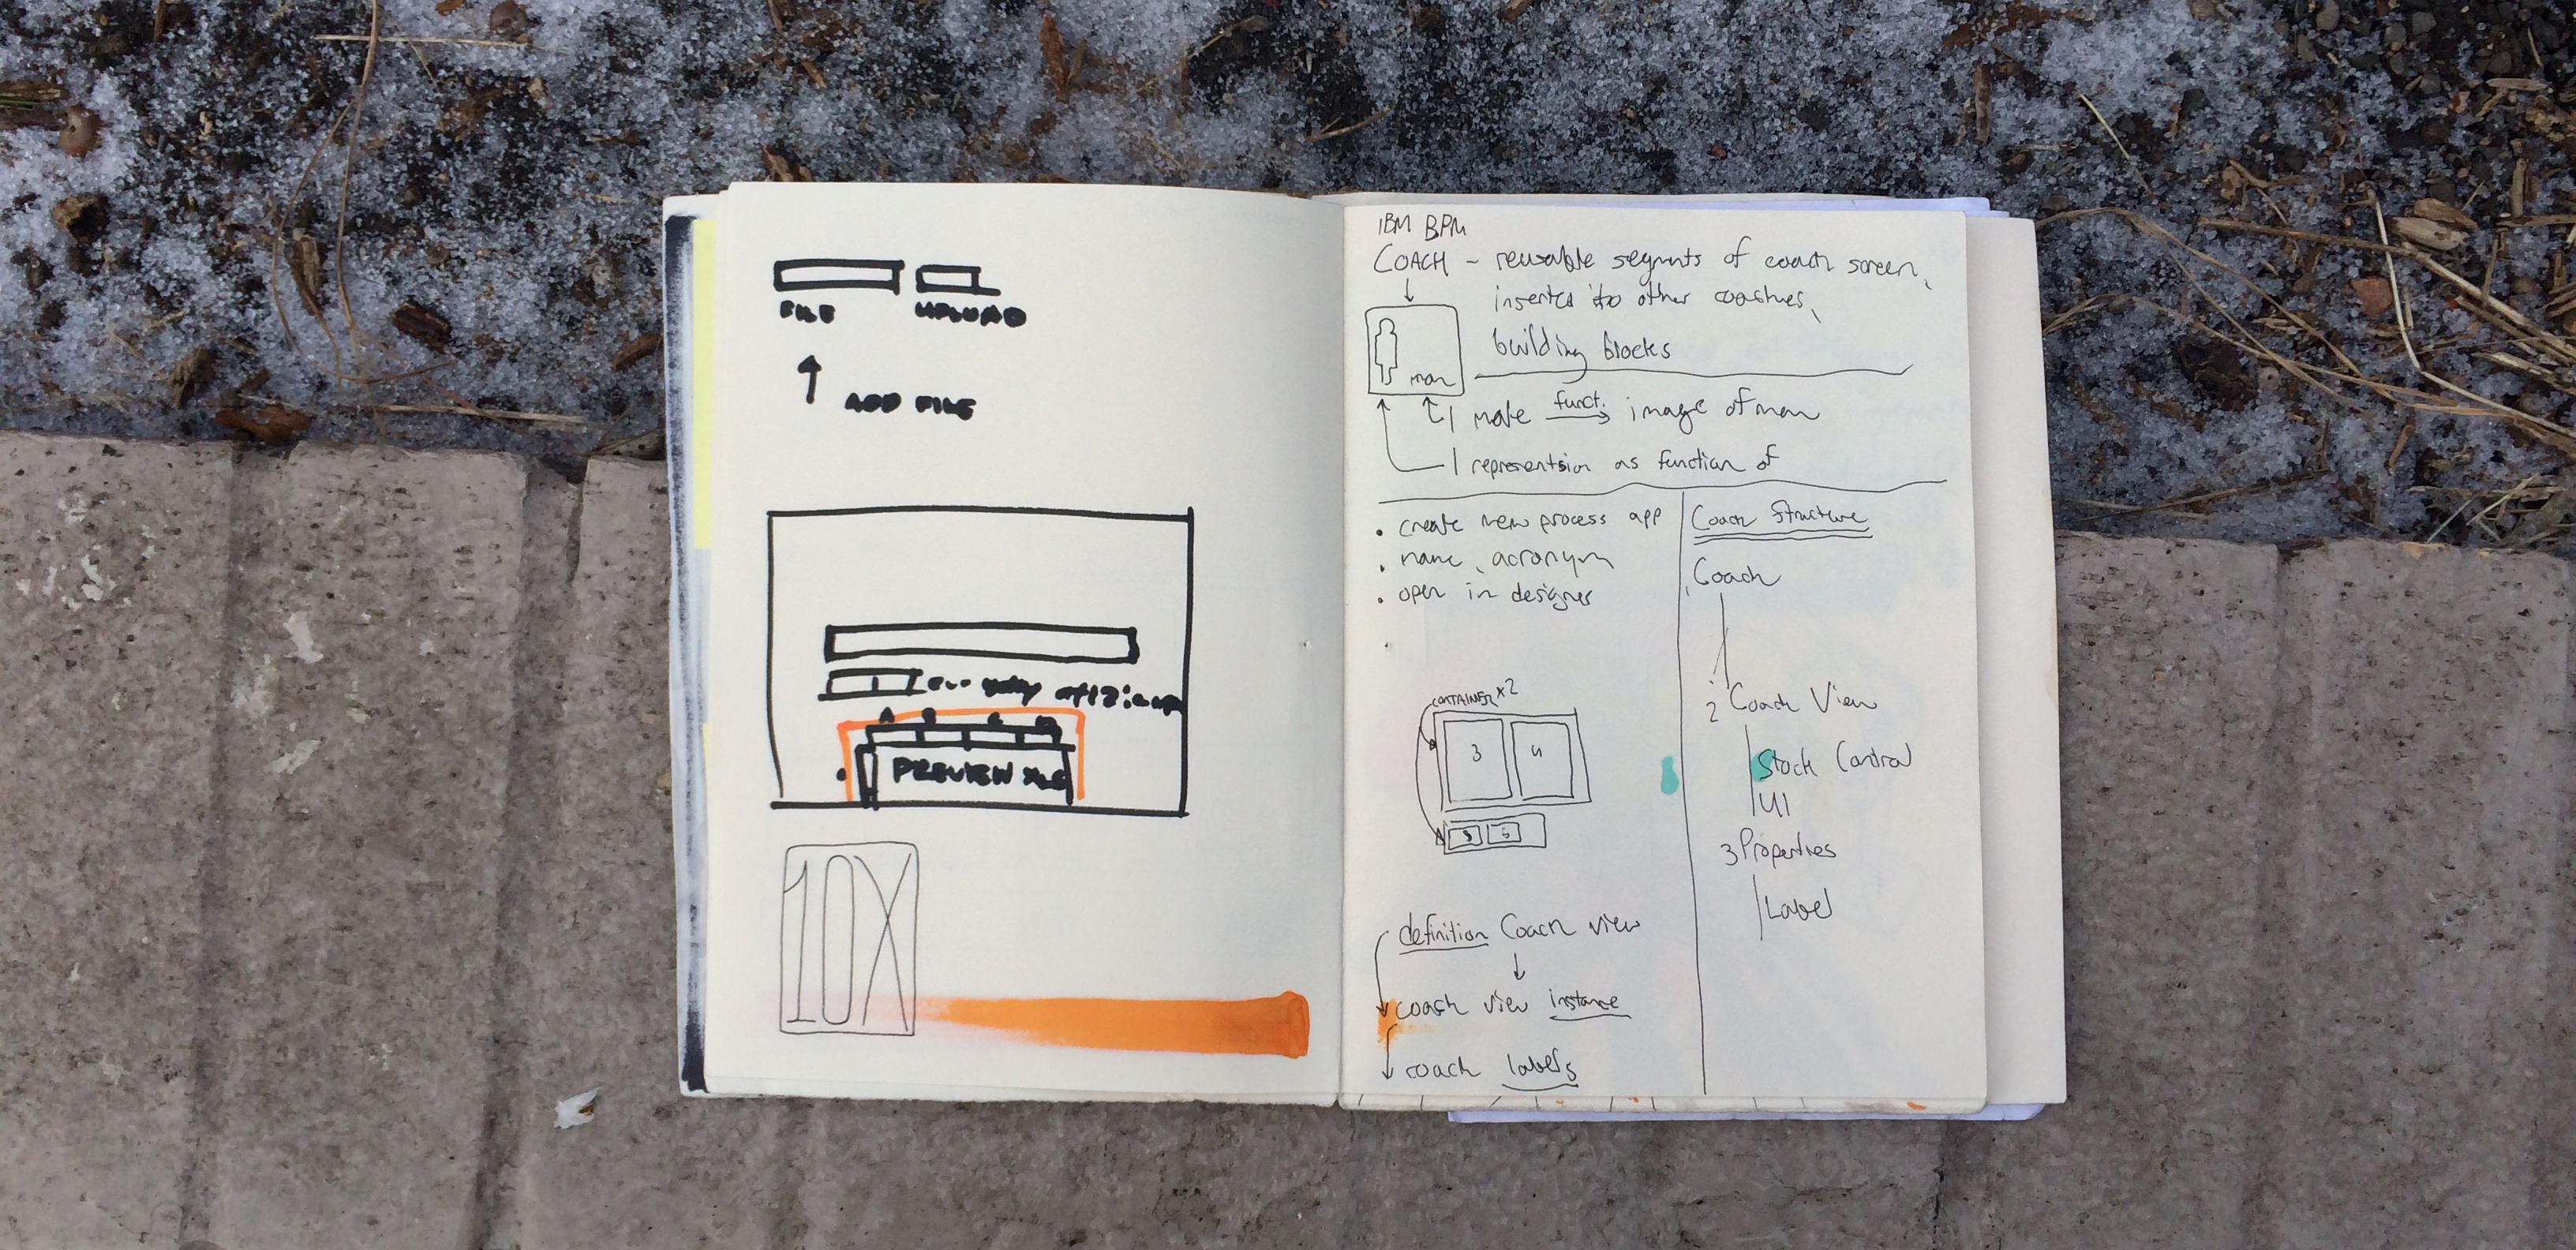 FILE UPLOAD
ADD FILE
PREVIEW XLS
10X
IBM BPM
COACH - reusable segments of coach screen,
inserted into other coaches,
building blocks
man
1 male funct. image of man
1 representsion as function of
• create new process app
• name, acronym
• open in designer
•
CONTAINER x2
3 4
5
definition Coach view
coach view instance
coach labels
Coach Structure
Coach
2 Coach View
Stock Control
UI
3 Properties
Label